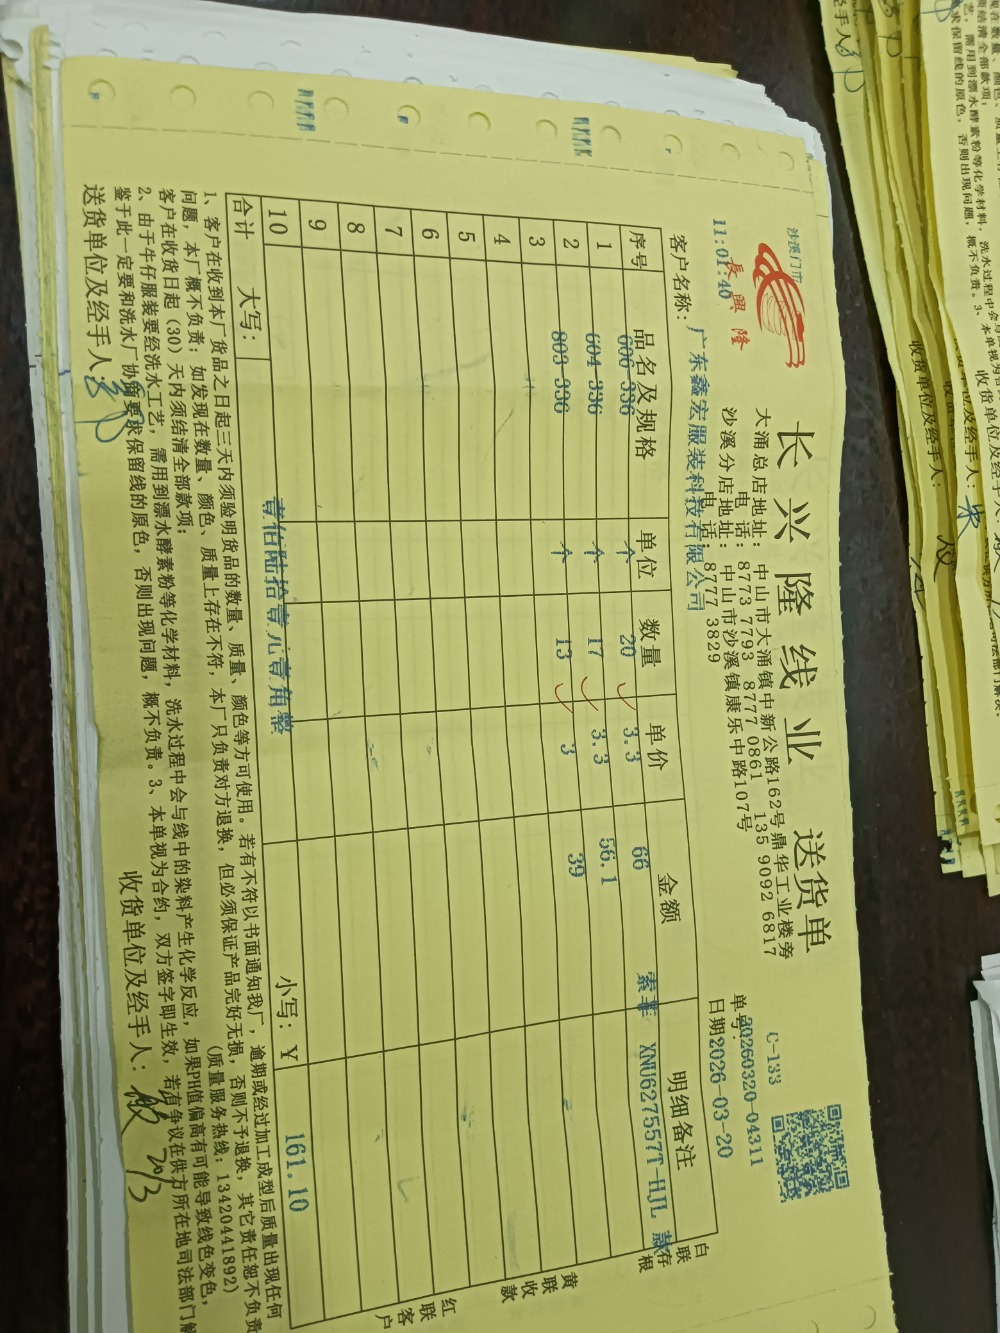 沙溪门市
長興隆
11:01:40
长兴隆线业 送货单
大涌总店地址：中山市大涌镇中新公路162号鼎华工业楼旁
电话：8773 7793 8777 0861 135 9092 6817
沙溪分店地址：中山市沙溪镇康乐中路107号
电话：8777 3829
C-133
单号：20260320-04311
日期2026-03-20
客户名称：广东鑫宏服装科技有限公司
序号 品名及规格 单位 数量 单价 金额 明细备注
1 606-336 个 20 3.3 66 索菲 XNU627557T-HJL 款
2 604-336 个 17 3.3 56.1
3 803-336 个 13 3 39
4
5
6
7
8
9
10
合计 大写：壹佰陆拾壹元壹角整 小写：￥ 161.10
白联存根
黄联收款
红联客户
1、客户在收到本厂货品之日起三天内须验明货品的数量、质量、颜色等方可使用。若有不符以书面通知我厂，逾期或经过加工成型后质量出现任何
问题，本厂概不负责；如发现在数量、颜色、质量上存在不符，本厂只负责对方退换，但必须保证产品完好无损，否则不予退换，其它责任恕不负责
客户在收货日起（30）天内须结清全部款项； （质量服务热线：13420441892）
2、由于牛仔服装要经洗水工艺，需用到漂水酵素粉等化学材料，洗水过程中会与线中的染料产生化学反应，如果PH值偏高有可能导致线色变色，
鉴于此一定要和洗水厂协商要求保留线的原色，否则出现问题，概不负责。3、本单视为合约，双方签字即生效，若有争议在供方所在地司法部门解
送货单位及经手人： 收货单位及经手人： 20/3